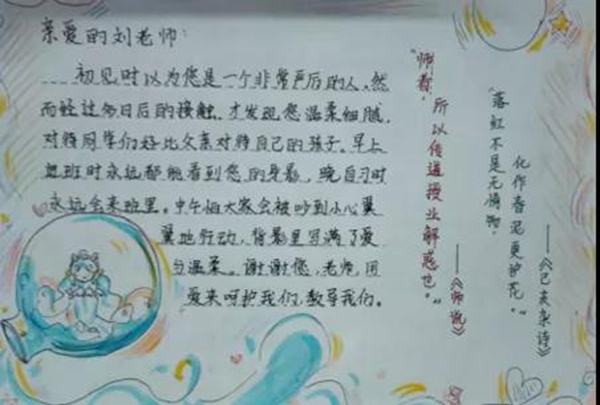 亲爱的刘老师:
初见时以为您是一个非常严后的人,然
而经过多日后的接触,才发现您温柔细腻,
对待同学们好比父亲对待自己的孩子。早上
进班时永远都能看到您的身影,晚自习时
永远会来班里。中午怕大家会被吵到小心翼
翼地行动,背影里写满了爱
与温柔。谢谢您,老师,用
爱来呵护我们,教导我们。
“师者,
所以传道授业解惑也。”
——《师说》
“落红不是无情物,
化作春泥更护花。”
——《己亥杂诗》